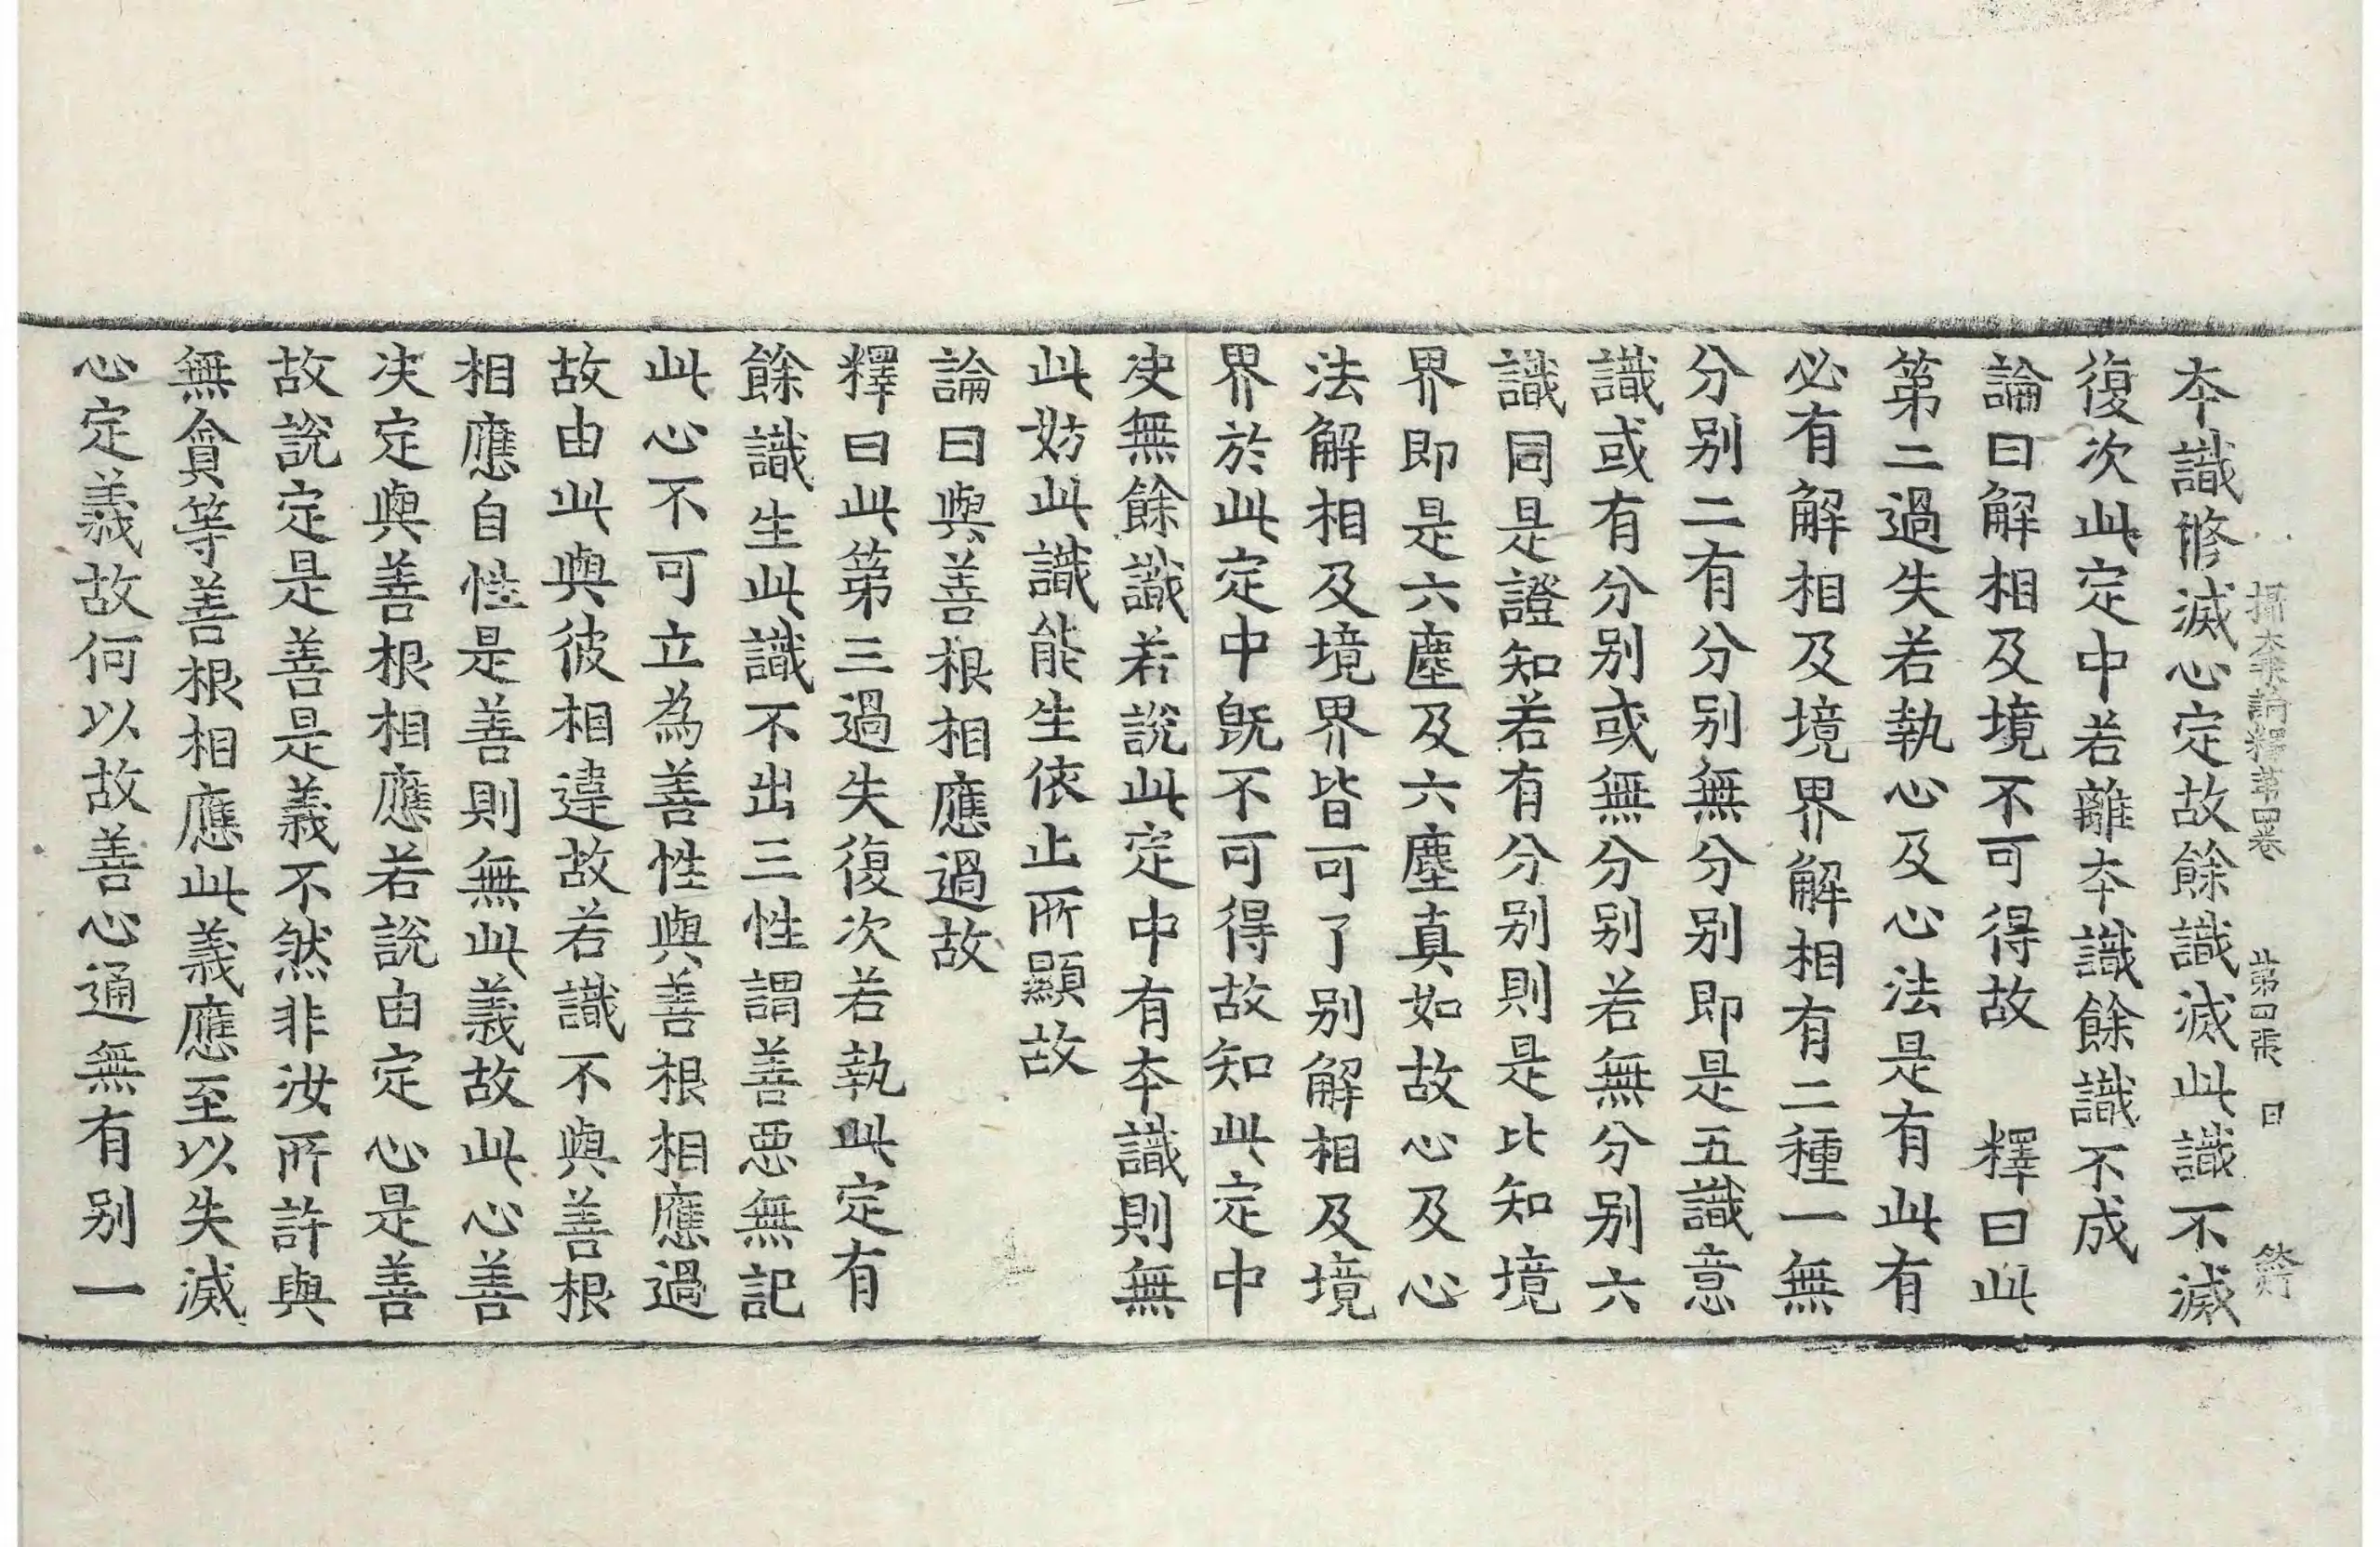 攝大乘論釋第四卷 第四張 日
本識修滅心定故餘識滅此識不滅
復次此定中若離本識餘識不成
論曰解相及境不可得故 釋曰此
第二過失若執心及心法是有此有
必有解相及境界解相有二種一無
分別二有分別無分別即是五識意
識或有分別或無分別若無分別六
識同是證知若有分別則是比知境
界即是六塵及六塵真如故心及心
法解相及境界皆可了別解相及境
界於此定中旣不可得故知此定中
決無餘識若說此定中有本識則無
此妨此識能生依止所顯故
論曰與善根相應過故
釋曰此第三過失復次若執此定有
餘識生此識不出三性謂善惡無記
此心不可立為善性與善根相應過
故由此與彼相違故若識不與善根
相應自性是善則無此義故此心善
決定與善根相應若說由定心是善
故說定是善是義不然非汝所許與
無貪等善根相應此義應至以失滅
心定義故何以故善心通無有別一